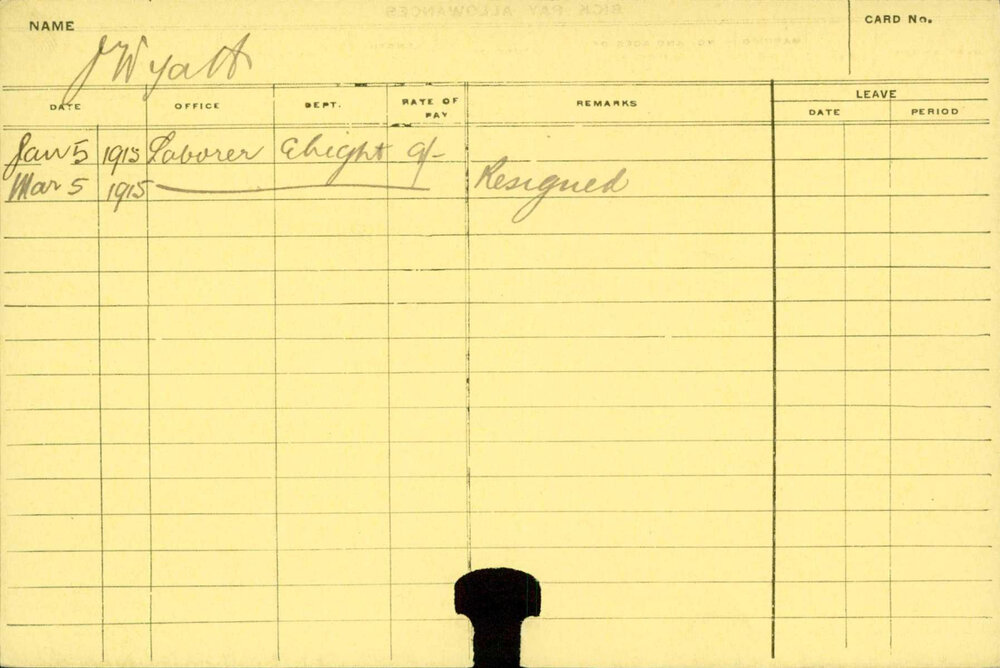 NAME
CARD No.
J Wyatt
DATE OFFICE DEPT. RATE OF PAY REMARKS LEAVE
DATE PERIOD
Jan 5 1915 Laborer Elight 9/-
Mar 5 1915 Resigned